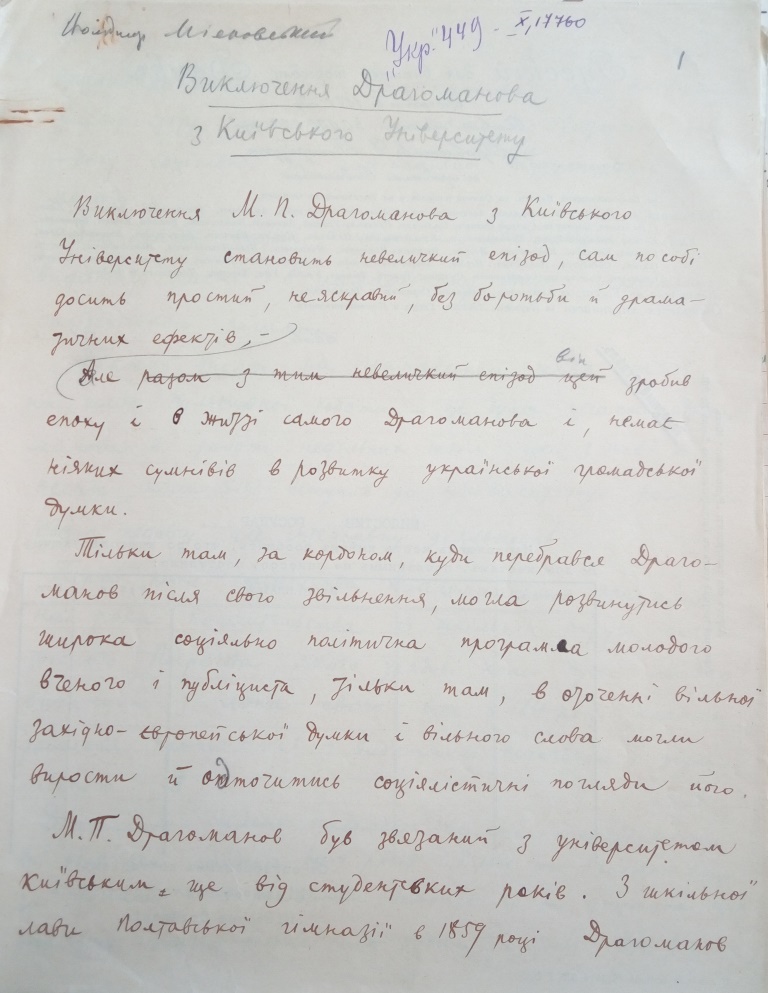 Володимир Міяковський
Укр. "449 - X, 17760
1
Виключення Драгоманова
з Київського Університету
Виключення М. П. Драгоманова з Київського
Університету становить невеличкий епізод, сам по собі
досить простий, неяскравий, без боротьби й драма-
тичних ефектів, -
Але разом з тим невеличкий епізод цей він зробив
епоху і в житті самого Драгоманова і, немає
ніяких сумнівів в розвитку української громадської
думки.
Тільки там, за кордоном, куди перебрався Драго-
манов після свого звільнення, могла розвинутись
широка соціяльно політична програма молодого
вченого і публіциста, тільки там, в оточенні вільної
західно-європейської думки і вільного слова могли
вирости й одточитись соціялістичні погляди його.
М. П. Драгоманов був звязаний з університетом
київським ще від студентських років. З шкільної
лави Полтавської гімназії в 1859 році Драгоманов